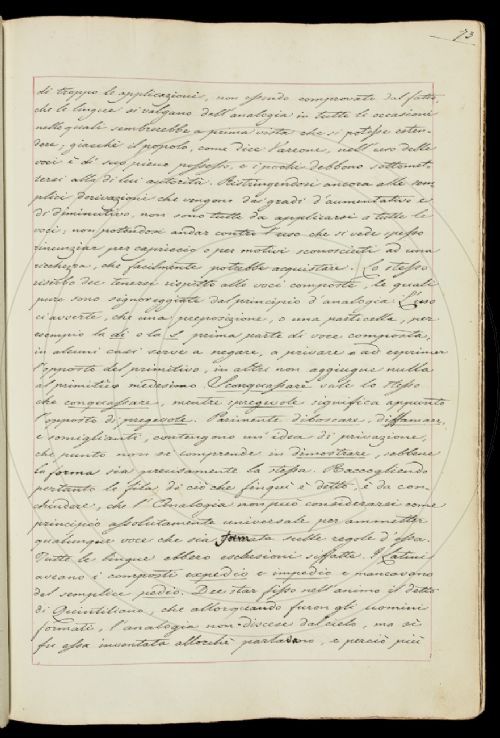 73
di troppo le applicazioni, non essendo comprovate dal fatto,
che le lingue si valgano dell'analogia in tutte le occasioni
nelle quali sembrerebbe a prima vista che si potesse esten-
dere; giacchè il popolo, come dice Varrone, nell'uso delle
voci è di suo pieno possesso, e i pochi debbono sottomet-
tersi alla di lui autorità. Restringendosi ancora alle sem-
plici derivazioni che vengono da' gradi d'aumentativo e
di diminutivo, non sono tutte da applicarsi a tutte le
voci; non potendosi andar contro l'uso che si vede spesso
rinunziar per capriccio o per motivi sconosciuti ad una
ricchezza, che facilmente potrebbe acquistare. Lo stesso
risolto dee tenersi rispetto alle voci composte, le quali
pure sono signoreggiate dal principio d'analogia. L'uso
ci avverte, che una preposizione, o una particella, per
esempio la di o la s, prima parte di voce composta,
in alcuni casi serve a negare, a privare o ad esprimer
l'opposto del primitivo, in altri non aggiugne nulla
al primitivo medesimo. Sconquassare vale lo stesso
che conquassare, mentre spregevole significa appunto
l'opposto di pregevole. Parimente disossare, diffamare,
e somiglianti, contengono un'idea di privazione,
che punto non si comprende in dimostrare, sebbene
la forma sia precisamente la stessa. Raccogliendo
pertanto le fila di ciò che finquì è detto, è da con-
chiudere, che l'Analogia non può considerarsi come
principio assolutamente universale per ammetter
qualunque voce che sia formata sulle regole d'essa.
Tutte le lingue ebbero esclusioni siffatte. I Latini
aveano i composti expedio e impedio e mancavano
del semplice pedio. Dee star fisso nell'animo il detto
di Quintiliano, che allorquando furon gli uomini
formati, l'analogia non discese dal cielo, ma si
fu essa inventata allorchè parlavano, e perciò più